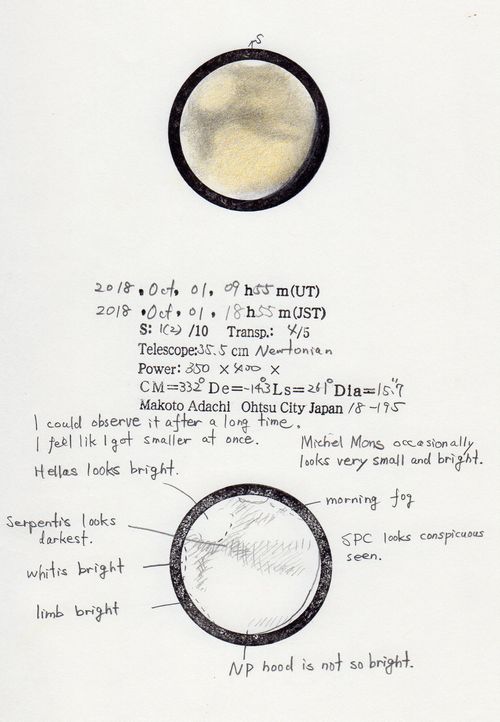 S
2018, Oct, 01, 09h55m(UT)
2018, Oct, 01, 18h55m(JST)
S: 1(2)/10 Transp.: 4/5
Telescope: 35.5 cm Newtonian
Power: 350 × 400 ×
CM=332° De=-14.3 Ls=261° Dia=15."7
Makoto Adachi Ohtsu City Japan 18-195
I could observe it after a long time.
I feel lik I got smaller at once.
Michel Mons occasionally
looks very small and bright.
Hellas looks bright.
morning fog
Serpentis looks
darkest.
SPC looks conspicuous
seen.
whitis bright
limb bright
NP hood is not so bright.